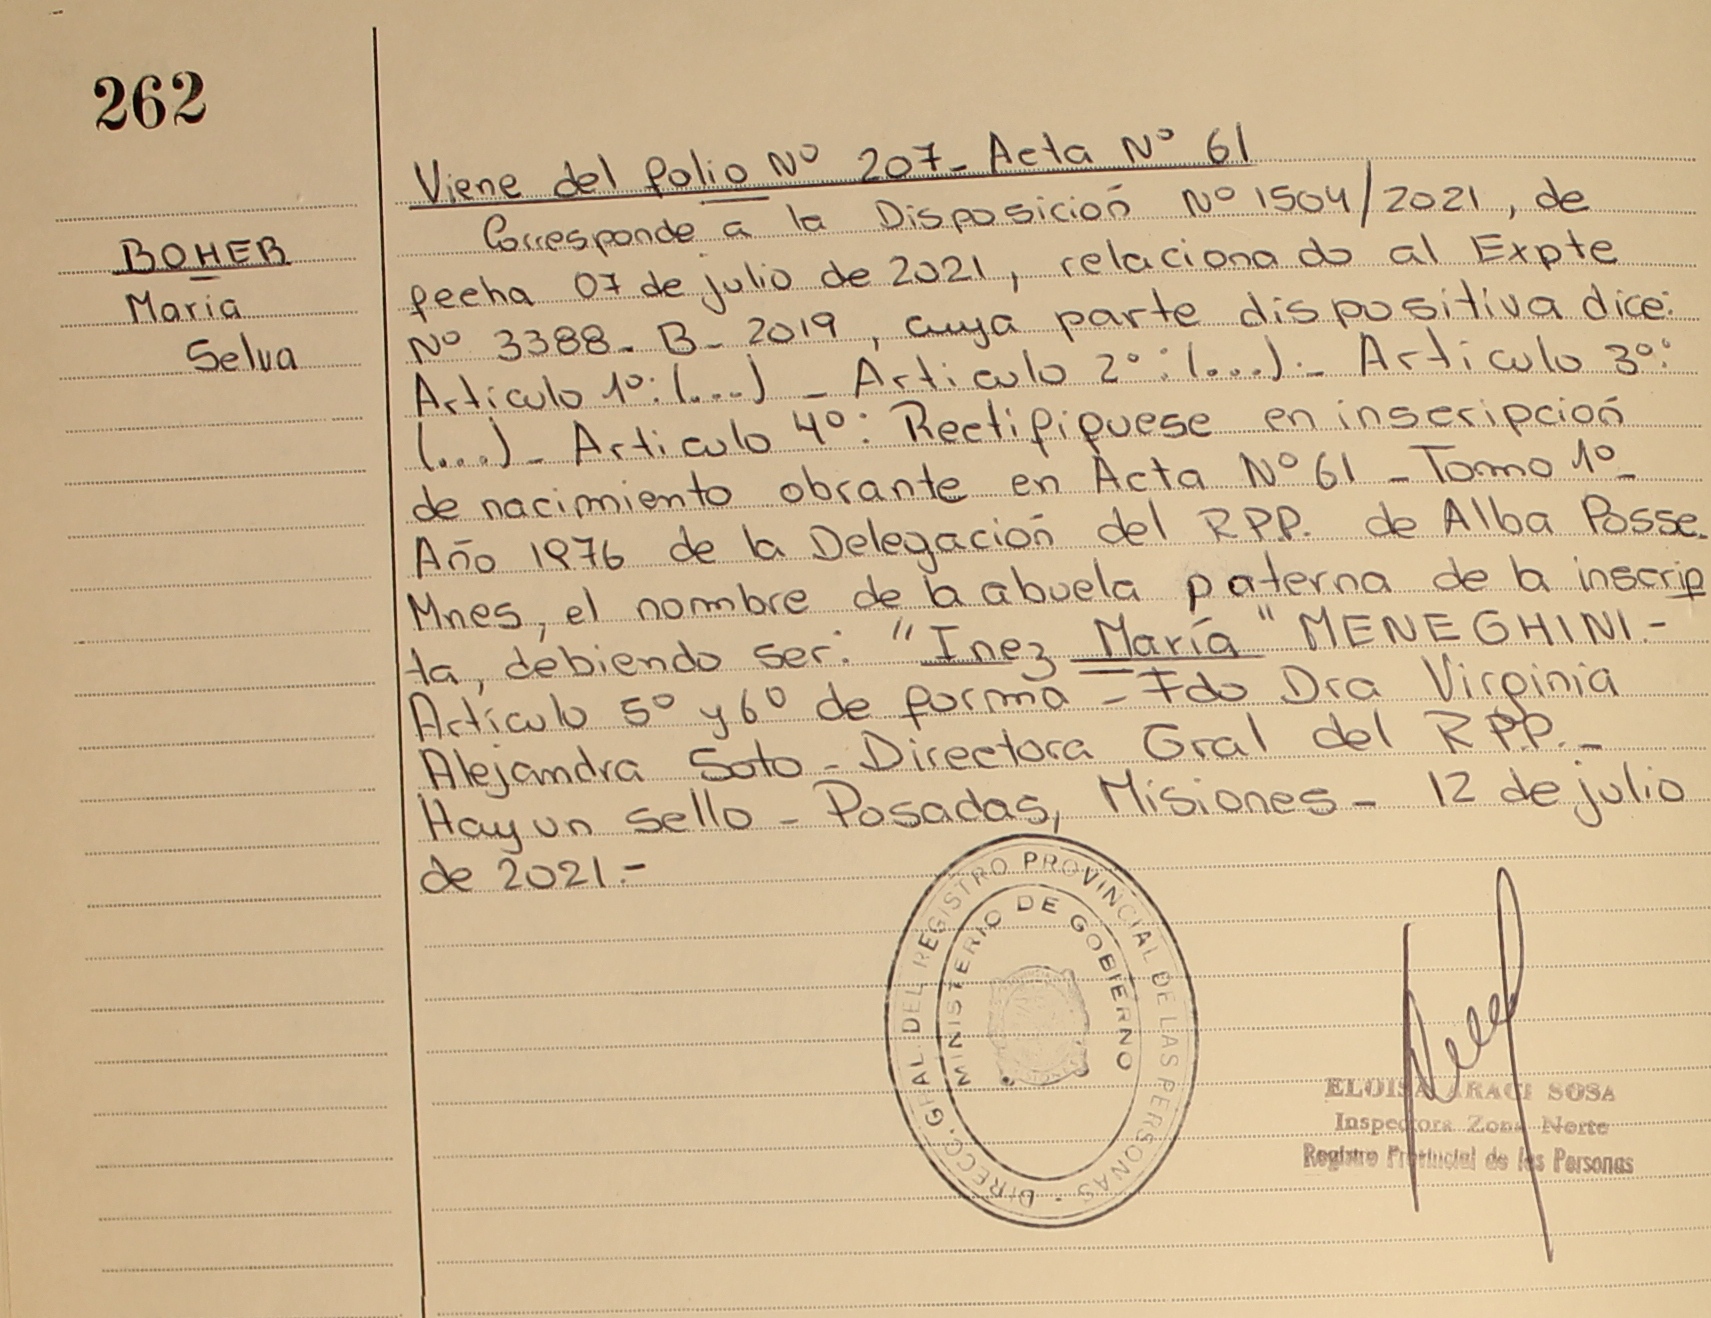 262
BOHER
María
Selva
Viene del folio Nº 207- Acta Nº 61
Corresponde a la Disposición Nº 1504/2021, de
fecha 07 de julio de 2021, relacionado al Expte
Nº 3388- B- 2019, cuya parte dispositiva dice:
Artículo 1º: (...) - Artículo 2º: (...).- Artículo 3º:
(...)- Artículo 4º: Rectifíquese en inscripción
de nacimiento obrante en Acta Nº 61 - Tomo 1º-
Año 1976 de la Delegación del R.P.P. de Alba Posse.
Mnes, el nombre de la abuela paterna de la inscrip
ta, debiendo ser: "Inez María" MENEGHINI.-
Artículo 5º y 6º de forma - Fdo Dra Virginia
Alejandra Soto - Directora Gral del R.P.P.-
Hay un sello - Posadas, Misiones - 12 de julio
de 2021.-
DIRECC. GRAL. DEL REGISTRO PROVINCIAL DE LAS PERSONAS
MINISTERIO DE GOBIERNO
ELOISA ARACI SOSA
Inspectora Zona Norte
Registro Provincial de las Personas